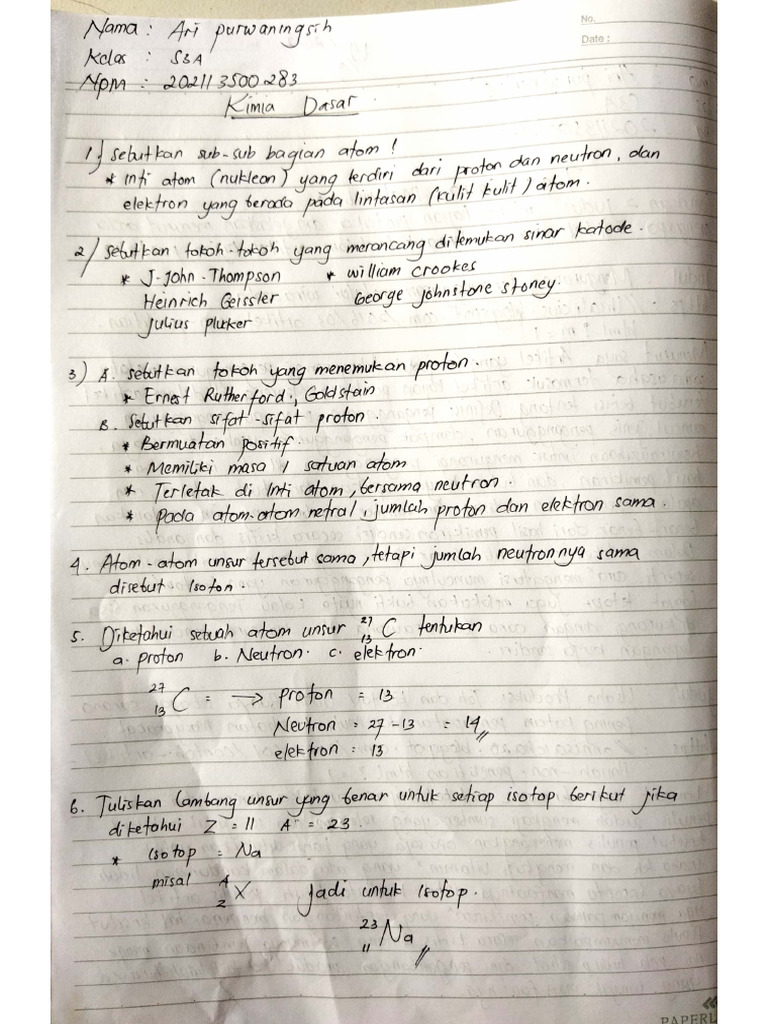 No.
Date :
Nama : Ari purwaningsih
Kelas : S3A
Npm : 202113500283
Kimia Dasar
1) Sebutkan sub-sub bagian atom !
* Inti atom (nukleon) yang terdiri dari proton dan neutron, dan
elektron yang berada pada lintasan (kulit kulit) atom.
2) Sebutkan tokoh-tokoh yang merancang ditemukan sinar katode.
* J. John. Thompson * william crookes
Heinrich Geissler George Johnstone Stoney.
Julius pluker
3) A. sebutkan tokoh yang menemukan proton.
* Ernest Rutherford, Goldstain
B. Sebutkan sifat-sifat proton.
* Bermuatan positif.
* Memiliki masa 1 satuan atom
* Terletak di Inti atom, bersama neutron.
* Pada atom-atom netral, jumlah proton dan elektron sama.
4. Atom-atom unsur tersebut sama, tetapi jumlah neutronnya sama
disebut Isoton.
5. Diketahui sebuah atom unsur ²⁷₁₃C tentukan
a. proton b. Neutron. c. elektron.
²⁷₁₃C = → proton = 13
Neutron = 27 - 13 = 14
elektron = 13
6. Tuliskan lambang unsur yang benar untuk setiap isotop berikut jika
diketahui Z = 11 A = 23.
* Isotop = Na
misal ᴬ_Z X jadi untuk Isotop.
²³₁₁Na
PAPERL